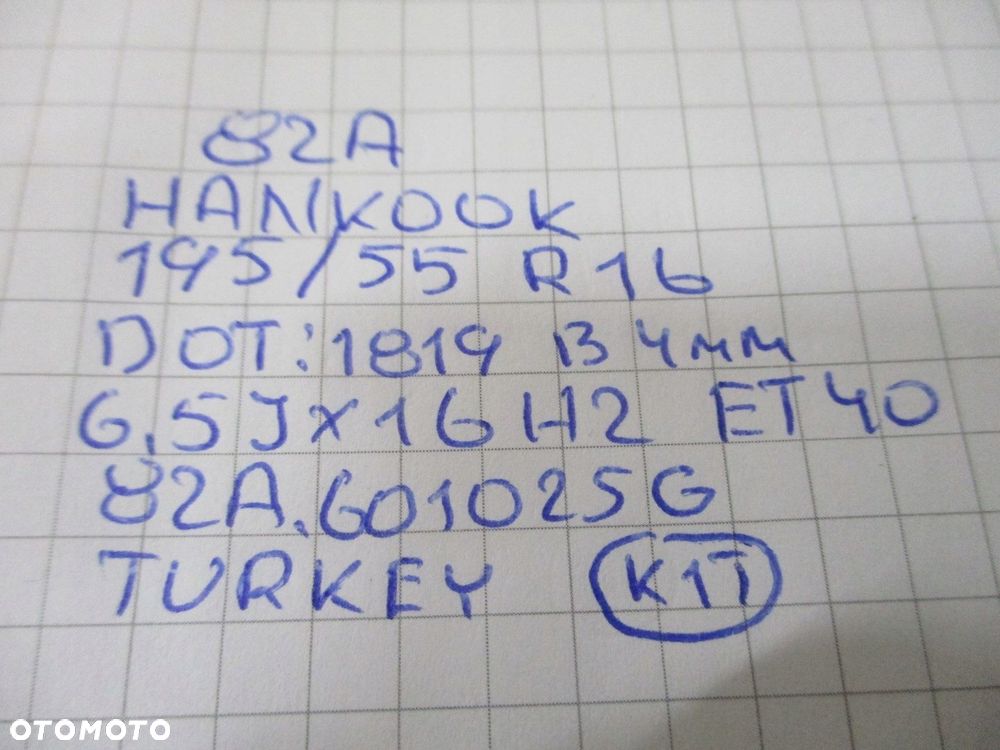 82A
HANKOOK
195/55 R16
DOT:1819 B 4mm
6.5Jx16H2 ET40
82A.601025G
TURKEY K1T
OTOMOTO